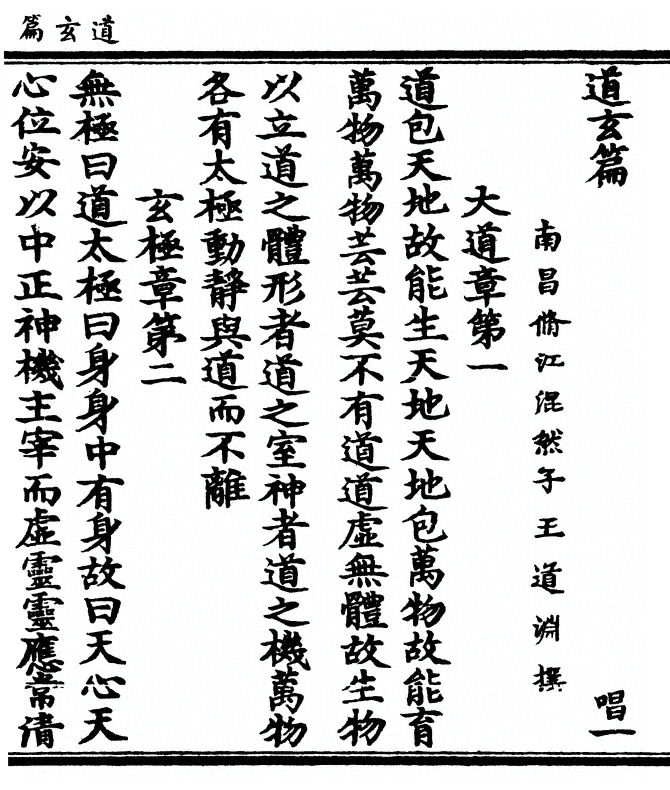 道玄篇
道玄篇 唱一
南昌脩江混然子王道淵撰
大道章第一
道包天地故能生天地天地包萬物故能育
萬物萬物芸芸莫不有道道虛無體故生物
以立道之體形者道之室神者道之機萬物
各有太極動靜與道而不離
玄極章第二
無極曰道太極曰身身中有身故曰天心天
心位安以中正神機主宰而虛靈靈應常清